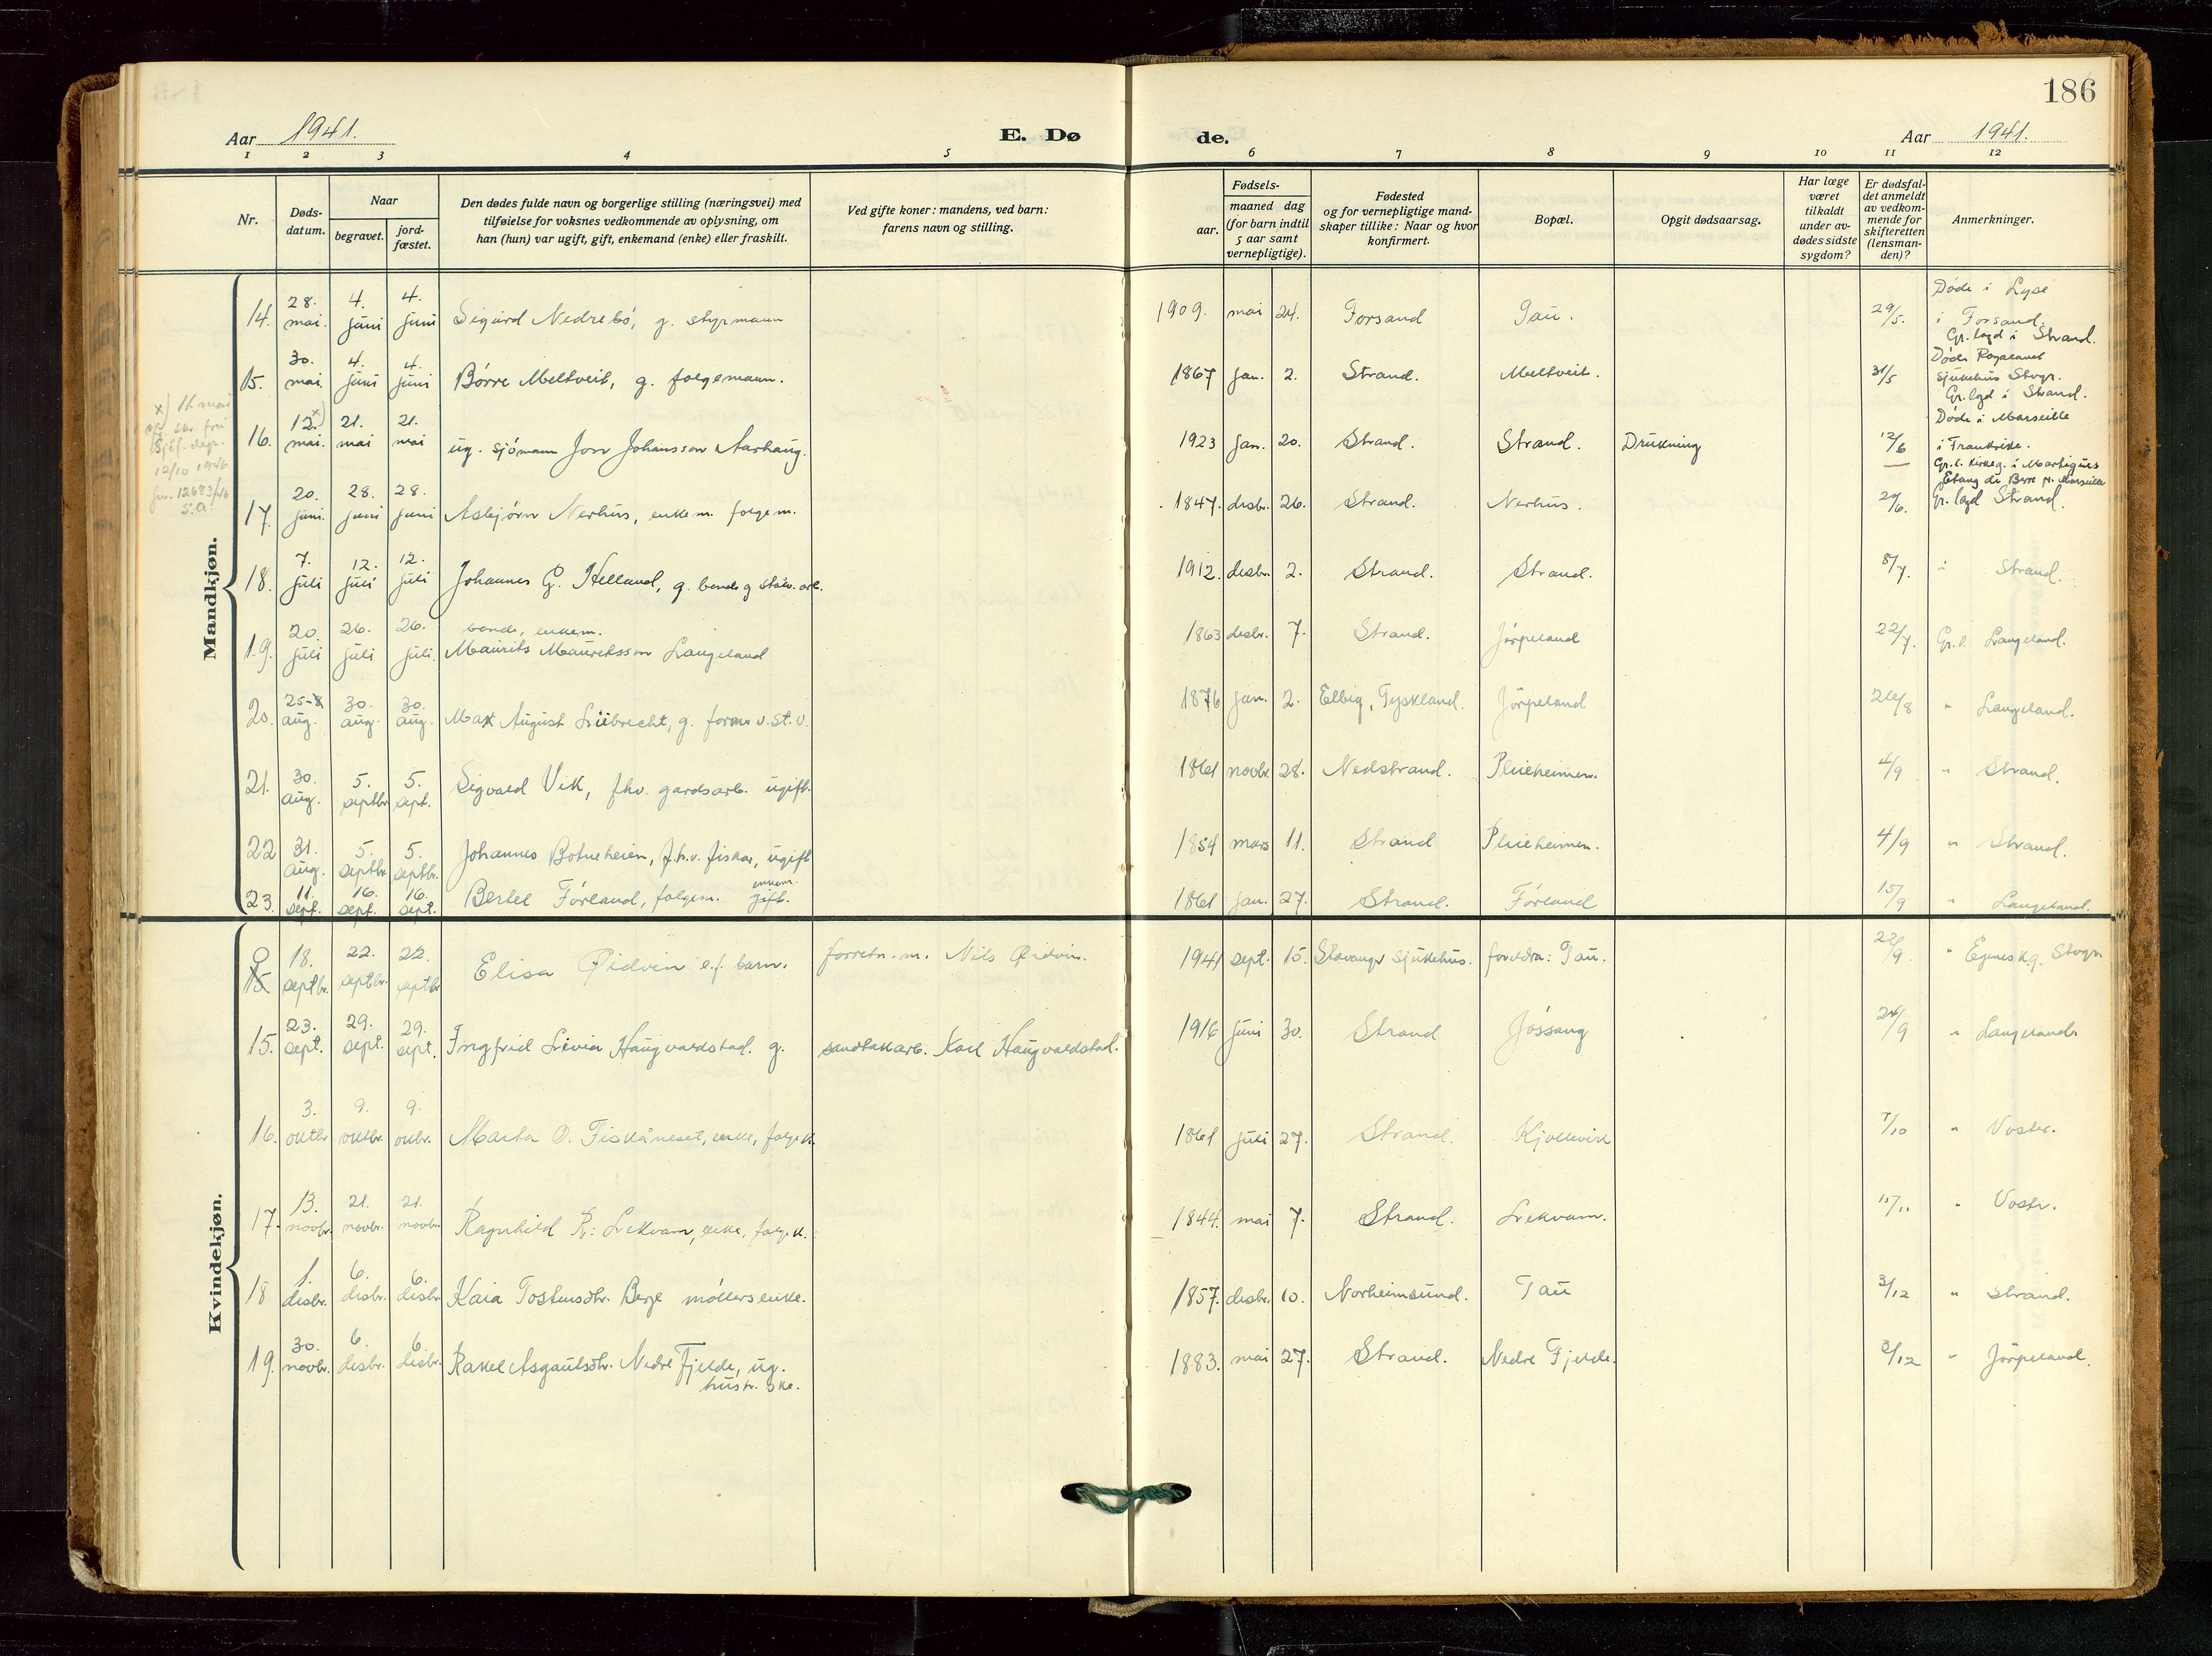 186
Aar 1941.
E. Dø
de.
Aar 1941.
1 2 3 4 5 6 7 8 9 10 11 12
Nr.
Døds-
datum.
Naar
begravet.
jord-
fæstet.
Den dødes fulde navn og borgerlige stilling (næringsvei) med
tilføielse for voksnes vedkommende av oplysning, om
han (hun) var ugift, gift, enkemand (enke) eller fraskilt.
Ved gifte koner: mandens, ved barn:
farens navn og stilling.
Fødsels-
aar.
maaned dag
(for barn indtil
5 aar samt
vernepligtige).
Fødested
og for vernepligtige mand-
skaper tillike: Naar og hvor
konfirmert.
Bopæl.
Opgit dødsaarsag.
Har læge
været
tilkaldt
under av-
dødes sidste
sygdom?
Er dødsfal-
det anmeldt
av vedkom-
mende for
skifteretten
(lensman-
den)?
Anmerkninger.
Mandkjøn.
14. 28. mai. 4. juni 4. juni Sigurd Nedrebö, g. styrmann 1909. mai 24. Forsand Tau. 29/5. Döde i Lyse
i Forsand.
Gr. lagd i Strand.
15. 30. mai. 4. juni 4. juni Börre Meltveit, g. folgemann. 1867 jan. 2. Strand. Meltveit. 31/5 Döde Rogaland
sjukehus Stvgr.
Gr. lagd i Strand.
x) 11. mai
16. 12. x) mai. 21. mai 21. mai ug. sjömann Jon Johansson Aarhaug. 1923 jan. 20. Strand. Strand. Drukning 12/6 Döde i Marseille
i Frankrike.
Gr. l. kirkeg. i Martigues
Etang de Berre pr. Marseille
12/10 1946
17. 20. juni. 28. juni 28. juni Asbjörn Nerhus, enkem. folgem. 1847. desbr. 26. Strand. Nerhus. 20/6. Gr. lagd Strand.
18. 7. juli 12. juli 12. juli Johannes G. Helland, g. bonde og stålv. arb. 1912. desbr. 2. Strand. Strand. 8/7. " Strand.
19. 20. juli 26. juli 26. juli. bonde, enkem.
Maurits Mauritsson Langeland 1863 desbr. 7. Strand. Jörpeland 22/7. Gr. l. Langeland.
20. 25-8 aug. 30. aug. 30. aug. Max August Lübrecht, g. former v. St. V. 1876 jan. 2. Elbig, Tyskland. Jörpeland 26/8 " Langeland.
21. 30. aug. 5. septbr. 5. sept. Sigvald Vik, fhv. gardsarb. ugift. 1861 novbr. 28. Nedstrand. Pleieheimen. 4/9 " Strand.
22 31. aug. 5. septbr. 5. septbr. Johannes Botneheien, f.h.v. fiskar, ugift 1854 mars 11. Strand Pleieheimen. 4/9 " Strand.
23. 11. sept. 16. sept. 16. sept. Bertel Förland, folgem. enkem. gift. 1861 jan. 27. Strand. Förland 15/9 " Langeland.
Kvindekjøn.
0 15 18. septbr. 22. septbr. 22. septbr Elisa Eidvin e.f. barn. forretn. m. Nils Eidvin. 1941 sept. 15. Stavanger sjukehus. foreldra: Tau. 22/9. " Egenes kg. Stvgr.
15. 23. sept. 29. sept. 29. sept. Ingfrid Livia Haugvaldstad. g. sandtakarb. Karl Haugvaldstad. 1916 juni 30. Strand Jössang 24/9 " Langeland.
16. 3. oktbr 9. oktbr. 9. okbr. Marta O. Fiskåneset, enke, folgek. 1861 juli 27. Strand. Kjöllevik 7/10 " Vostr.
17. 13. novbr. 21. novbr. 21. novbr. Ragnhild R: Lekvam, enke, folgek. 1844. mai 7. Strand. Lekvam. 15/11 " Vostr.
18 1. desbr. 6. desbr. 6. desbr. Kaia Tostensdtr. Berge möllers enke. 1857. desbr. 10. Norheimsund. Tau 3/12 " Strand.
19. 30. novbr. 6. desbr. 6. desbr. Rakel Asgautsdtr. Nedre Fjelde, ug. 1883. mai 27. Strand. Nedre Fjelde. 2/12 " Jörpeland.